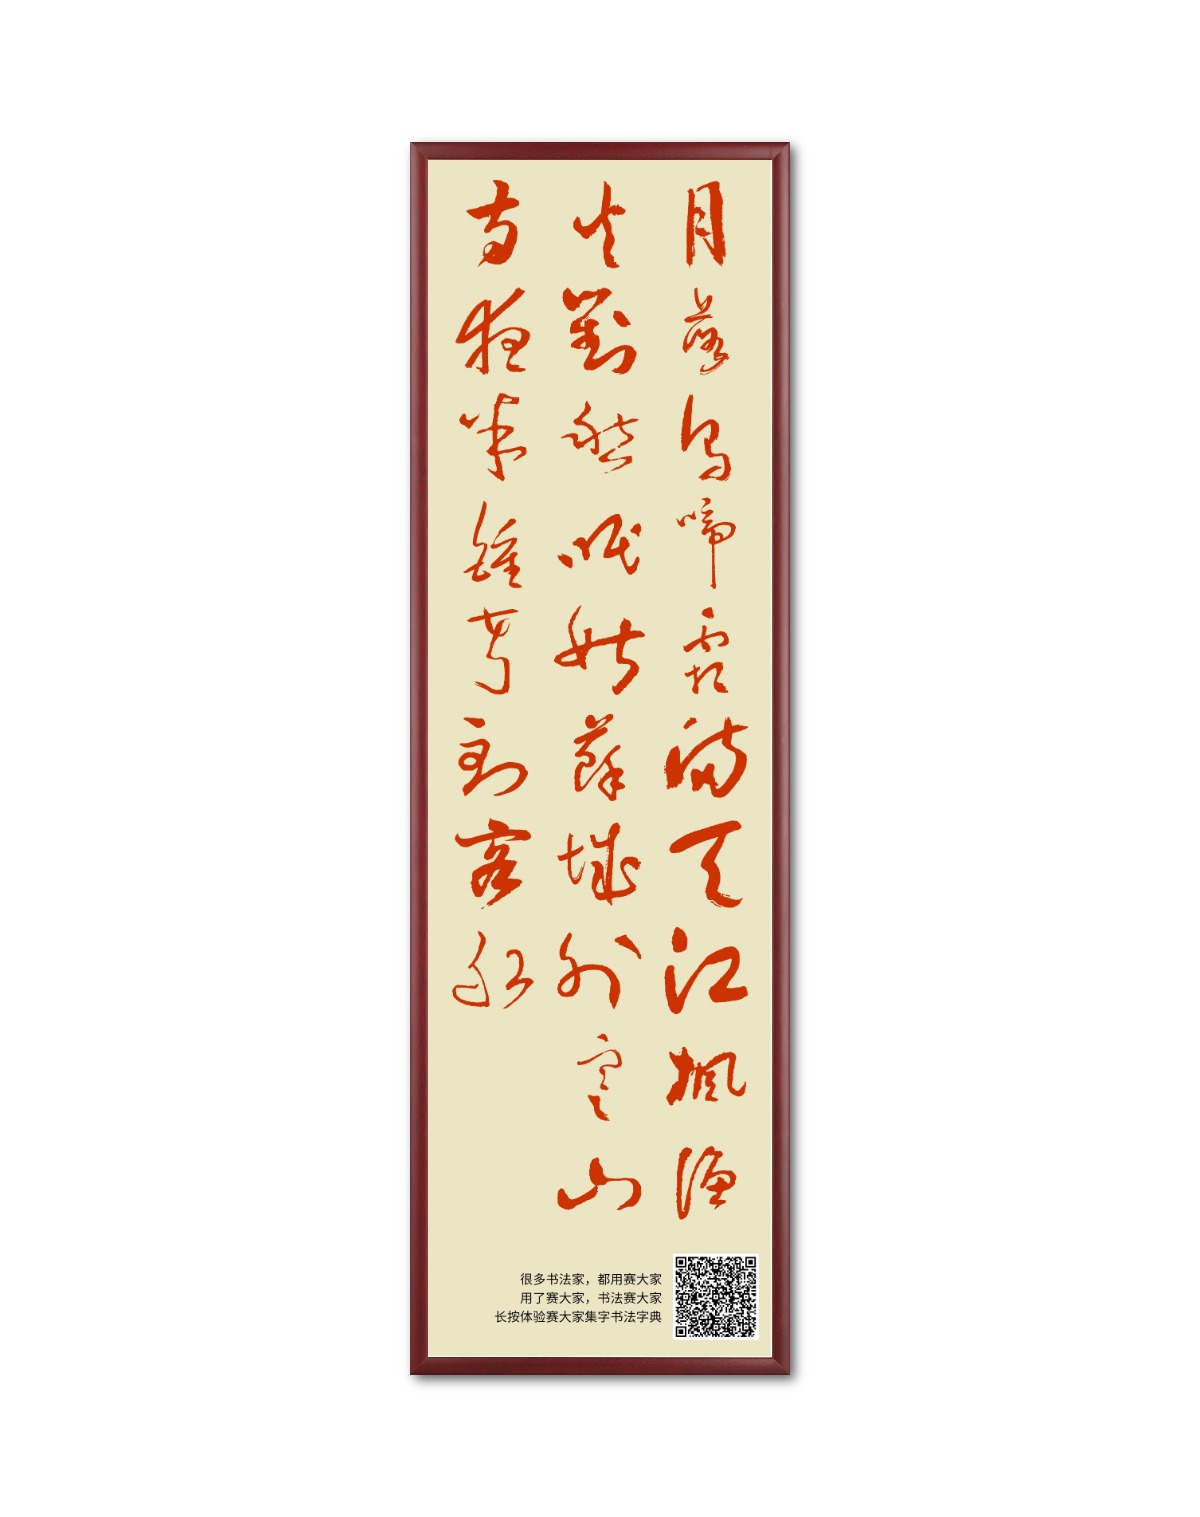 月落烏啼霜滿天江楓漁
火對愁眠姑蘇城外寒山
寺夜半鍾聲到客船
很多书法家，都用赛大家
用了赛大家，书法赛大家
长按体验赛大家集字书法字典